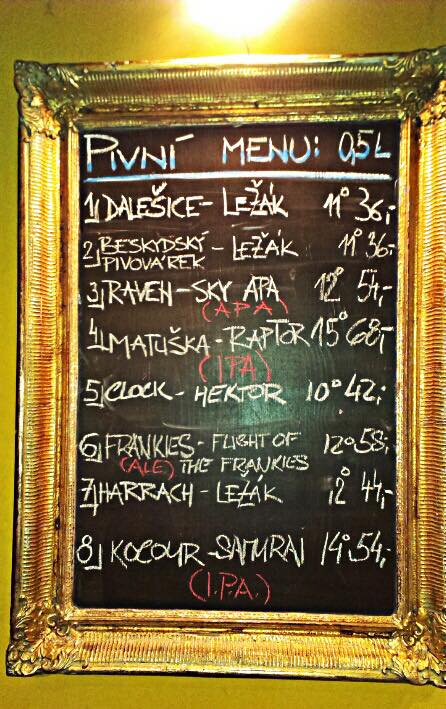 PIVNÍ MENU: 0,5L
1) DALEŠICE - LEŽÁK 11° 36,-
2) BESKYDSKÝ PIVOVÁREK - LEŽÁK 11° 36,-
3) RAVEN - SKY APA 12° 54,-
(APA)
4) MATUŠKA - RAPTOR 15° 68,-
(IPA)
5) CLOCK - HEKTOR 10° 42,-
6) FRANKIES - FLIGHT OF 12° 58,-
(ALE) THE FRANKIES
7) HARRACH - LEŽÁK 12° 44,-
8) KOCOUR - SAMURAI 14° 54,-
(I.P.A.)